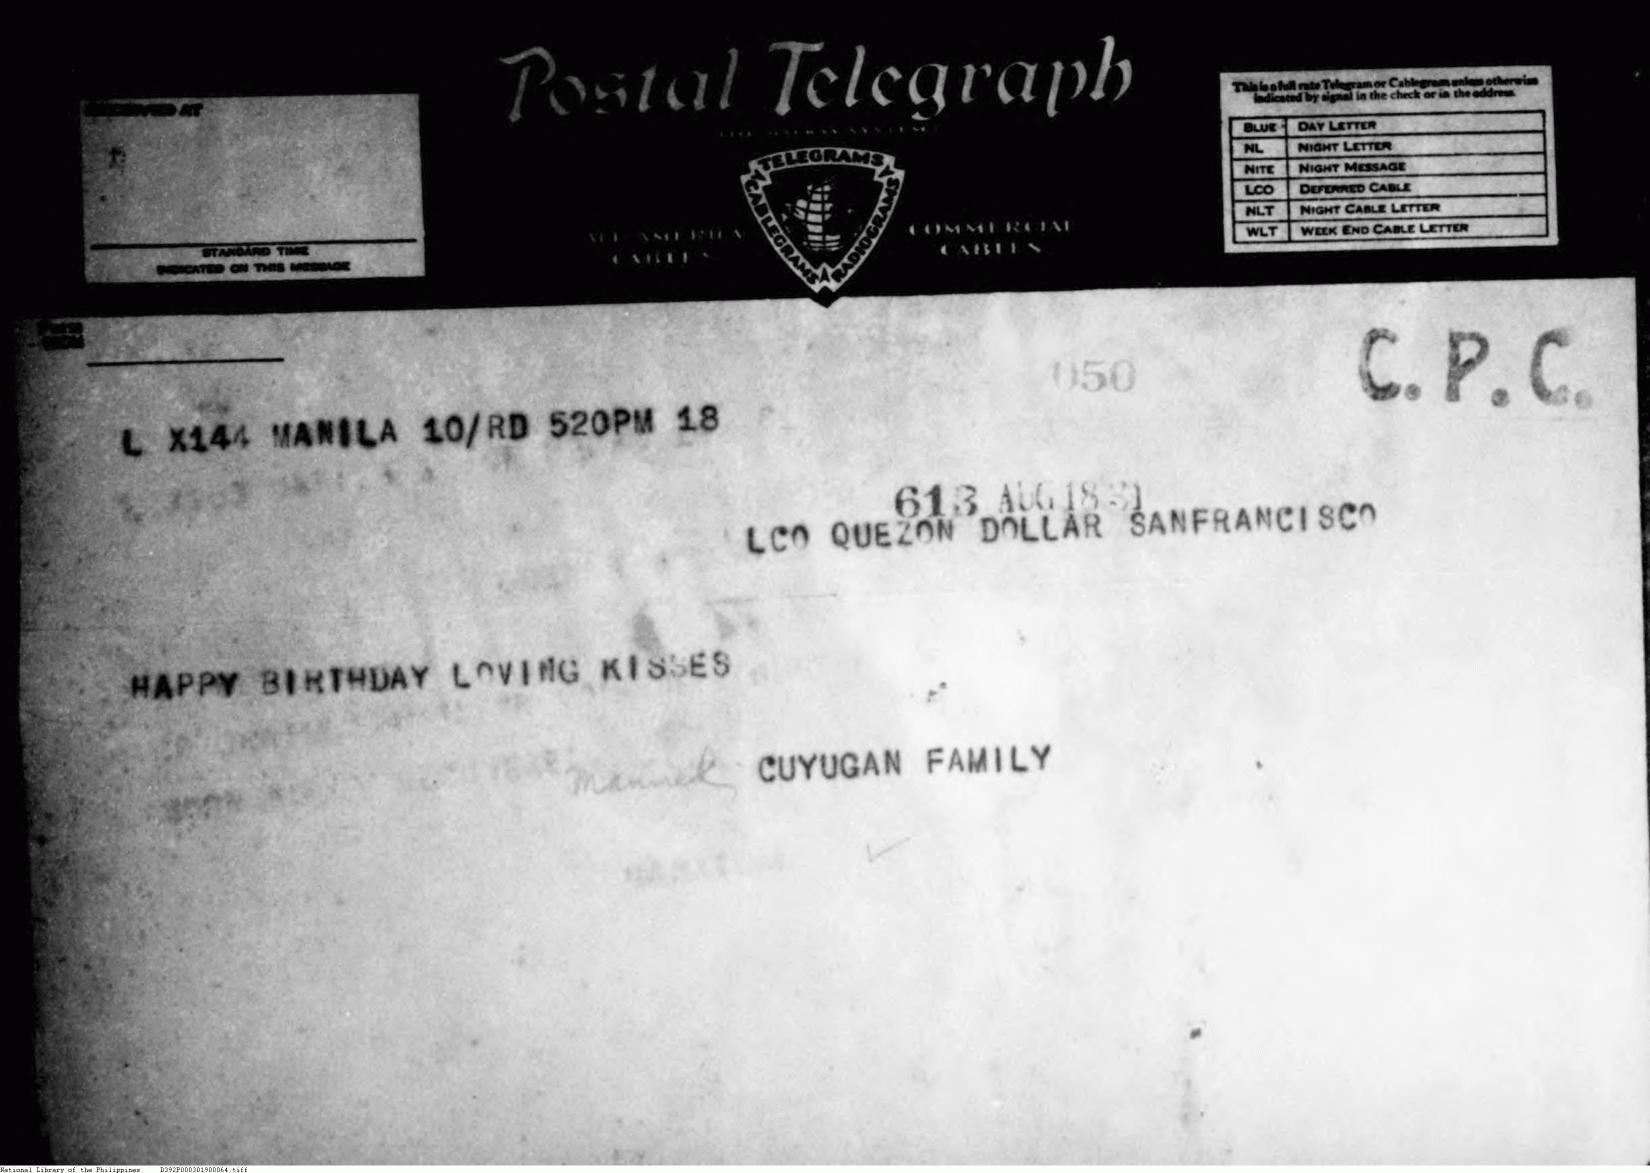 Postal Telegraph
THE MACKAY SYSTEM
RECEIVED AT
STANDARD TIME
INDICATED ON THIS MESSAGE
TELEGRAMS
CABLEGRAMS
RADIOGRAMS
ALL AMERICA
CABLES
COMMERCIAL
CABLES
This is a full rate Telegram or Cablegram unless otherwise
indicated by signal in the check or in the address.
BLUE DAY LETTER
NL NIGHT LETTER
NITE NIGHT MESSAGE
LCO DEFERRED CABLE
NLT NIGHT CABLE LETTER
WLT WEEK END CABLE LETTER
Form
050
C.P.C.
L X144 MANILA 10/RD 520PM 18
613 AUG 18 31
LCO QUEZON DOLLAR SANFRANCISCO
HAPPY BIRTHDAY LOVING KISSES
CUYUGAN FAMILY
National Library of the Philippines D392P000301900064.tiff